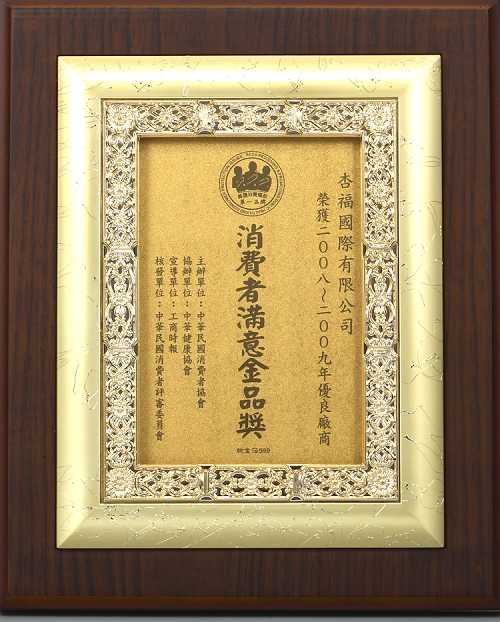 杏福國際有限公司
榮獲二〇〇八～二〇〇九年優良廠商
第一品牌
消費者滿意金品獎
純金箔999
主辦單位：中華民國消費者協會
協辦單位：中華健康協會
宣導單位：工商時報
核發單位：中華民國消費者評審委員會